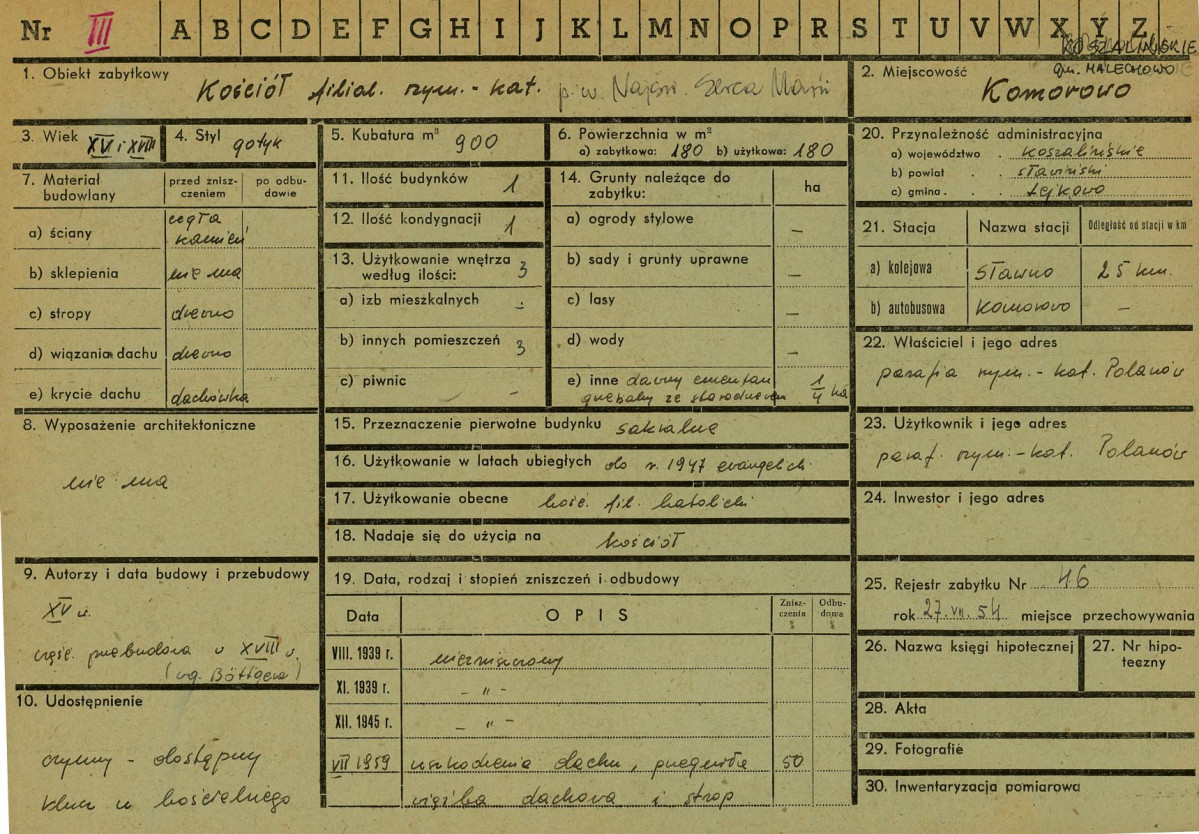 Nr III A B C D E F G H I J K L M N O P R S T U V W X Y Z
KOSZALIŃSKIE
gm. MALECHOWO
1. Obiekt zabytkowy Kościół filial. rzym.-kat. p.w. Najśw. Serca Marii
2. Miejscowość
Komorowo
3. Wiek XV i XVIII
4. Styl gotyk
5. Kubatura m³ 900
6. Powierzchnia w m²
a) zabytkowa: 180 b) użytkowa: 180
7. Materiał budowlany
przed zniszczeniem
po odbudowie
a) ściany cegła kamień
b) sklepienia nie ma
c) stropy drewno
d) wiązania dachu drewno
e) krycie dachu dachówka
8. Wyposażenie architektoniczne
nie ma
9. Autorzy i data budowy i przebudowy
XV w.
częśc. przebudowa w XVIII w.
(wg. Böttgera)
10. Udostępnienie
czynny - dostępny
klucz u kościelnego
11. Ilość budynków 1
12. Ilość kondygnacji 1
13. Użytkowanie wnętrza
według ilości: 3
a) izb mieszkalnych -
b) innych pomieszczeń 3
c) piwnic -
14. Grunty należące do
zabytku: ha
a) ogrody stylowe –
b) sady i grunty uprawne –
c) lasy –
d) wody –
e) inne dawny cmentarz
ze starodrzewem 1/4 ha
15. Przeznaczenie pierwotne budynku sakralne
16. Użytkowanie w latach ubiegłych do r. 1947 evangelick.
17. Użytkowanie obecne kość. fil. katolicki
18. Nadaje się do użycia na kościół
19. Data, rodzaj i stopień zniszczeń i odbudowy
Data OPIS Zniszczenia % Odbudowa %
VIII. 1939 r. niezniszczony
XI. 1939 r. – „ –
XII. 1945 r. – „ –
VII 1959 uszkodzenia dachu, przegniła 50
więźba dachowa i strop
20. Przynależność administracyjna
a) województwo . koszalińskie
b) powiat . . sławieński
c) gmina . . Lejkowo
21. Stacja Nazwa stacji Odległość od stacji w km
a) kolejowa Sławno 25 km.
b) autobusowa Komorowo –
22. Właściciel i jego adres
parafia rzym.-kat. Polanów
23. Użytkownik i jego adres
paraf. rzym.-kat. Polanów
24. Inwestor i jego adres
25. Rejestr zabytku Nr 46
rok 27.VII.54 miejsce przechowywania
26. Nazwa księgi hipotecznej
27. Nr hipoteczny
28. Akta
29. Fotografie
30. Inwentaryzacja pomiarowa